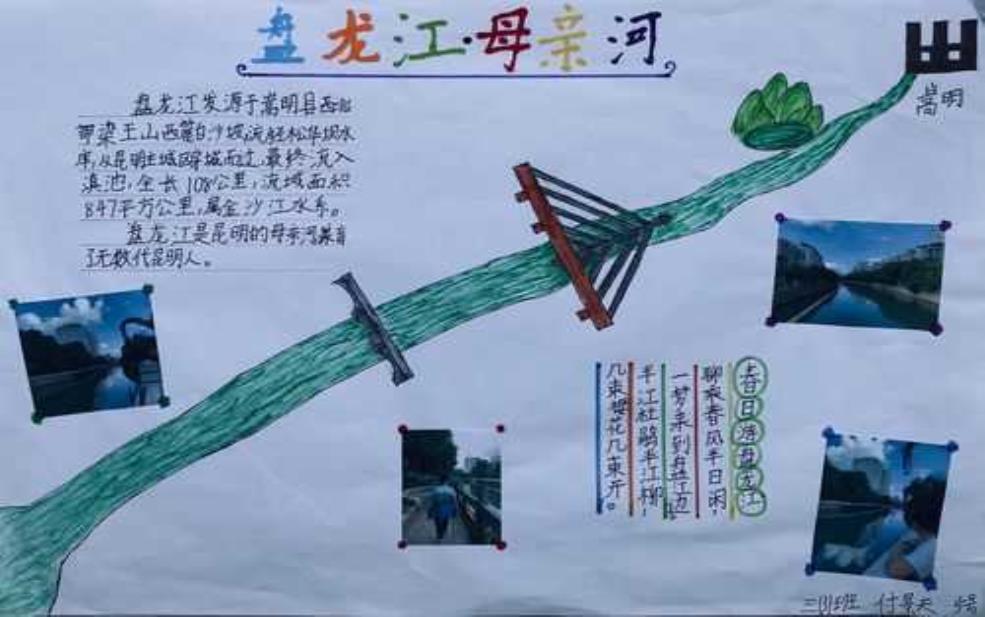 盘龙江·母亲河
嵩明
盘龙江发源于嵩明县西北
梁王山西麓白沙坡,流经松华坝水
库,从昆明主城区穿城而过,最终流入
滇池,全长108公里,流域面积
847平方公里,属金沙江水系。
盘龙江是昆明的母亲河养育
了无数代昆明人。
春日游盘龙江
聊乘春风半日闲,
一梦来到盘江边。
半江杜鹃半江柳,
几束樱花几束开。
付景天